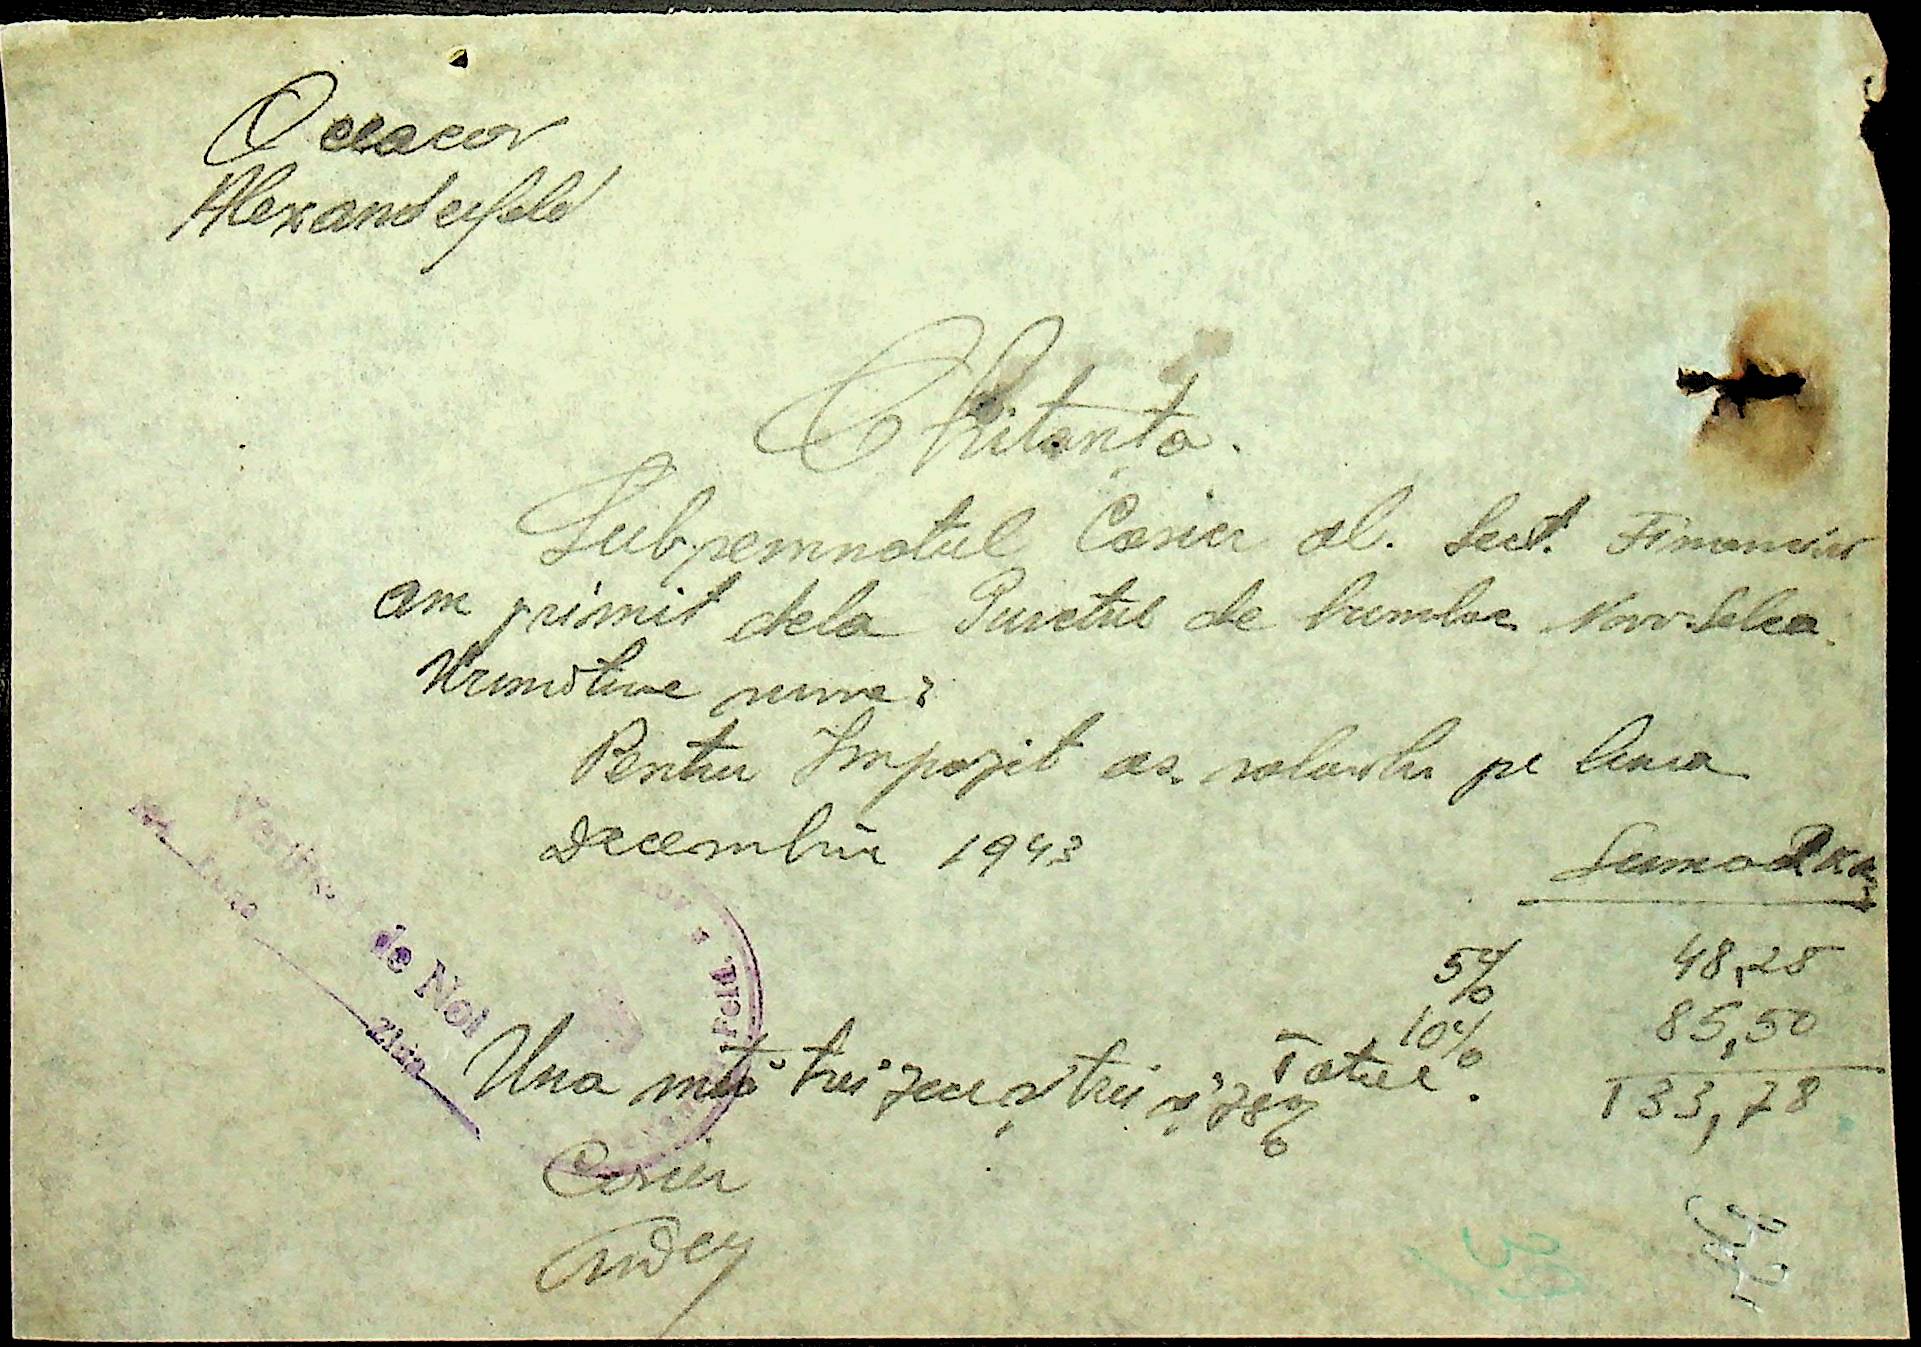 Oceacov
Alexanderfeld
Chitanța.
Subsemnatul Casier al. Sect. Financiar
am primit dela Punctul de bumbac Novo-Selca
Urmotare sume:
Pentru Impozit as. salariilor pe luna
Decembrie 1943
Suma Rkk
5% 48,28
10% 85,50
Total. 133,78
Una mie trei zeci și trei și 78%
Casier
Verificat de Noi
No.
Luna
Ziua